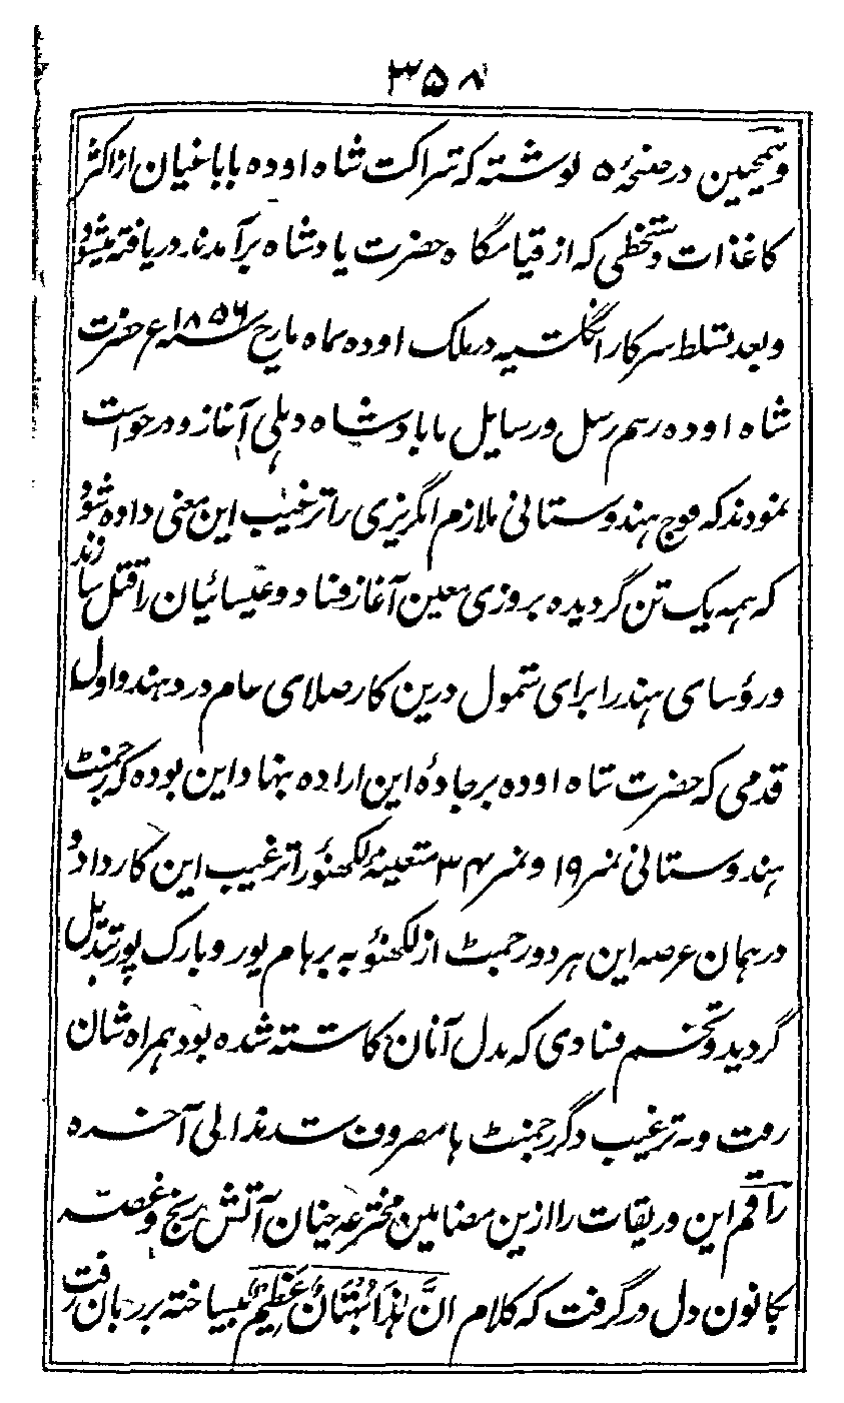 ۳۵۸
وهمچنین در صفحهٔ ۵ نوشته که شراکت شاه اوده با باغیان از اکثر
کاغذات دستخطی که از قیامگاه حضرت بادشاه برآمدند دریافته میشود
و بعد تسلط سرکار انگلشیه در ملک اوده بماه مارچ سنه ۱۸۵۶ع حضرت
شاه اوده رسم رسل و رسایل با بادشاه دهلی آغاز و درخواست
نمودند که فوج هندوستانی ملازم انگریزی را ترغیب این معنی داده شود
که همه یک تن گردیده بروزی معین آغاز فساد و عیسائیان را قتل سازند
و رؤسای هند را برای شمول درین کار صلای عام در دهند و اول
قدمی که حضرت شاه اوده بر جادهٔ این اراده بنهاد این بوده که رجمنٹ
هندوستانی نمبر ۱۹ و نمبر ۳۴ متعینهٔ لکهنؤ را ترغیب این کار داد و
در همان عرصه این هر دو رجمنٹ از لکهنؤ به برهام پور و بارک پور تبدیل
گردید و تخم فسادی که بدل آنان کاشته شده بود همراه شان
رفت و به ترغیب دگر رجمنٹ ها مصروف شدند الی آخره
راقم این وریقات را ازین مضامین مخترعه چنان آتش رنج و غصه
بکانون دل در گرفت که کلام انَّ هٰذَا بُهْتَانٌ عَظِیْمٌ بیساخته بر زبان رفت